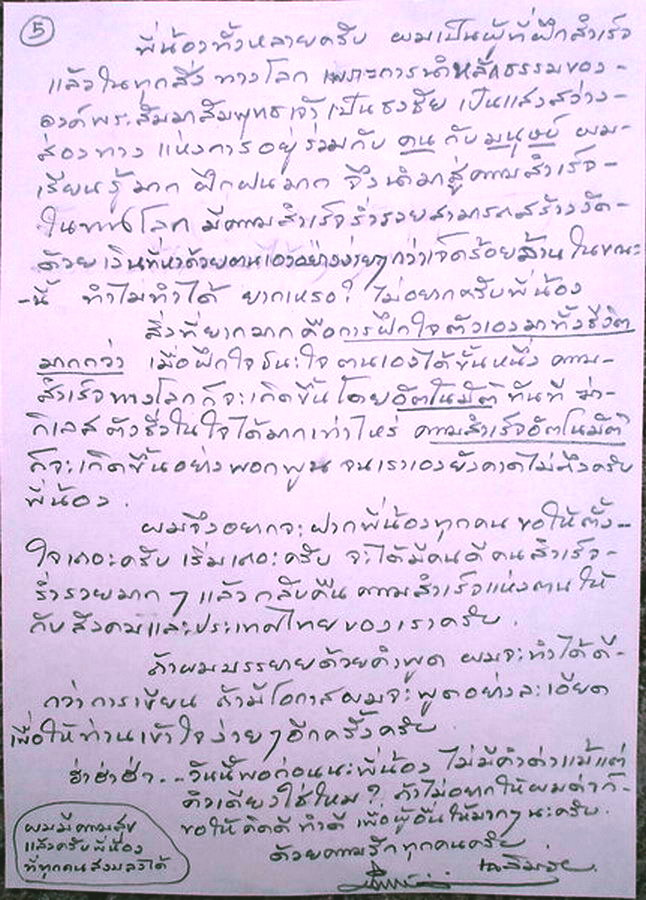 5
พี่น้องทั้งหลายครับ ผมเป็นผู้ที่ฝึกสำเร็จ
แล้วในทุกสิ่ง ทางโลก เพราะการนำหลักธรรมของ-
องค์พระสัมมาสัมพุทธเจ้า เป็นธงชัย เป็นแสงสว่าง-
ส่องทาง แห่งการอยู่ร่วมกับ คน กับ มนุษย์ ผม-
เรียนรู้มาก ฝึกฝนมาก จึงนำมาสู่ความสำเร็จ-
ในทางโลก มีความสำเร็จร่ำรวยสามารถสร้างวัด-
ด้วยเงินที่หาด้วยตนเองอย่างง่ายๆกว่าเจ็ดร้อยล้าน ในขณะ
-นี้ ทำไมทำได้ ยากเหรอ? ไม่อยากครับพี่น้อง
สิ่งที่ยากมาก คือการฝึกใจตัวเองมาทั้งชีวิต
มากกว่า เมื่อฝึกใจ ชนะใจ ตนเองได้ขั้นหนึ่ง ความ-
สำเร็จทางโลกก็จะเกิดขึ้นโดยอัตโนมัติ ทันที ฆ่า-
กิเลสตัวชั่วในใจได้มากเท่าไหร่ ความสำเร็จอัตโนมัติ
ก็จะเกิดขึ้นอย่างพอกพูน จนเราเองยังคาดไม่ถึงครับ
พี่น้อง.
ผมจึงอยากจะฝากพี่น้องทุกคน ขอให้ตั้ง-
ใจเถอะครับ เริ่มเถอะครับ จะได้มีคนดี คนสำเร็จ-
ร่ำรวยมากๆ แล้วกลับคืน ความสำเร็จแห่งตนให้
กับสังคมและประเทศไทยของเราครับ.
ถ้าผมบรรยายด้วยคำพูด ผมจะทำได้ดี-
กว่าการเขียน ถ้ามีโอกาสผมจะพูดอย่างละเอียด
เพื่อให้ท่านเข้าใจง่ายๆอีกครั้งครับ.
ฮ่าฮ่าฮ่า...วันนี้พอก่อนนะพี่น้อง ไม่มีคำด่าแม้แต่
คำเดียวใช่ไหม? ถ้าไม่อยากให้ผมด่าก็-
ขอให้คิดดี ทำดี เพื่อผู้อื่นให้มากๆนะครับ.
ด้วยความรักทุกคนครับ
เฉลิมชัย.
ผมมีความสุข
แล้วครับพี่น้อง
ที่ทุกคนสงบลงได้